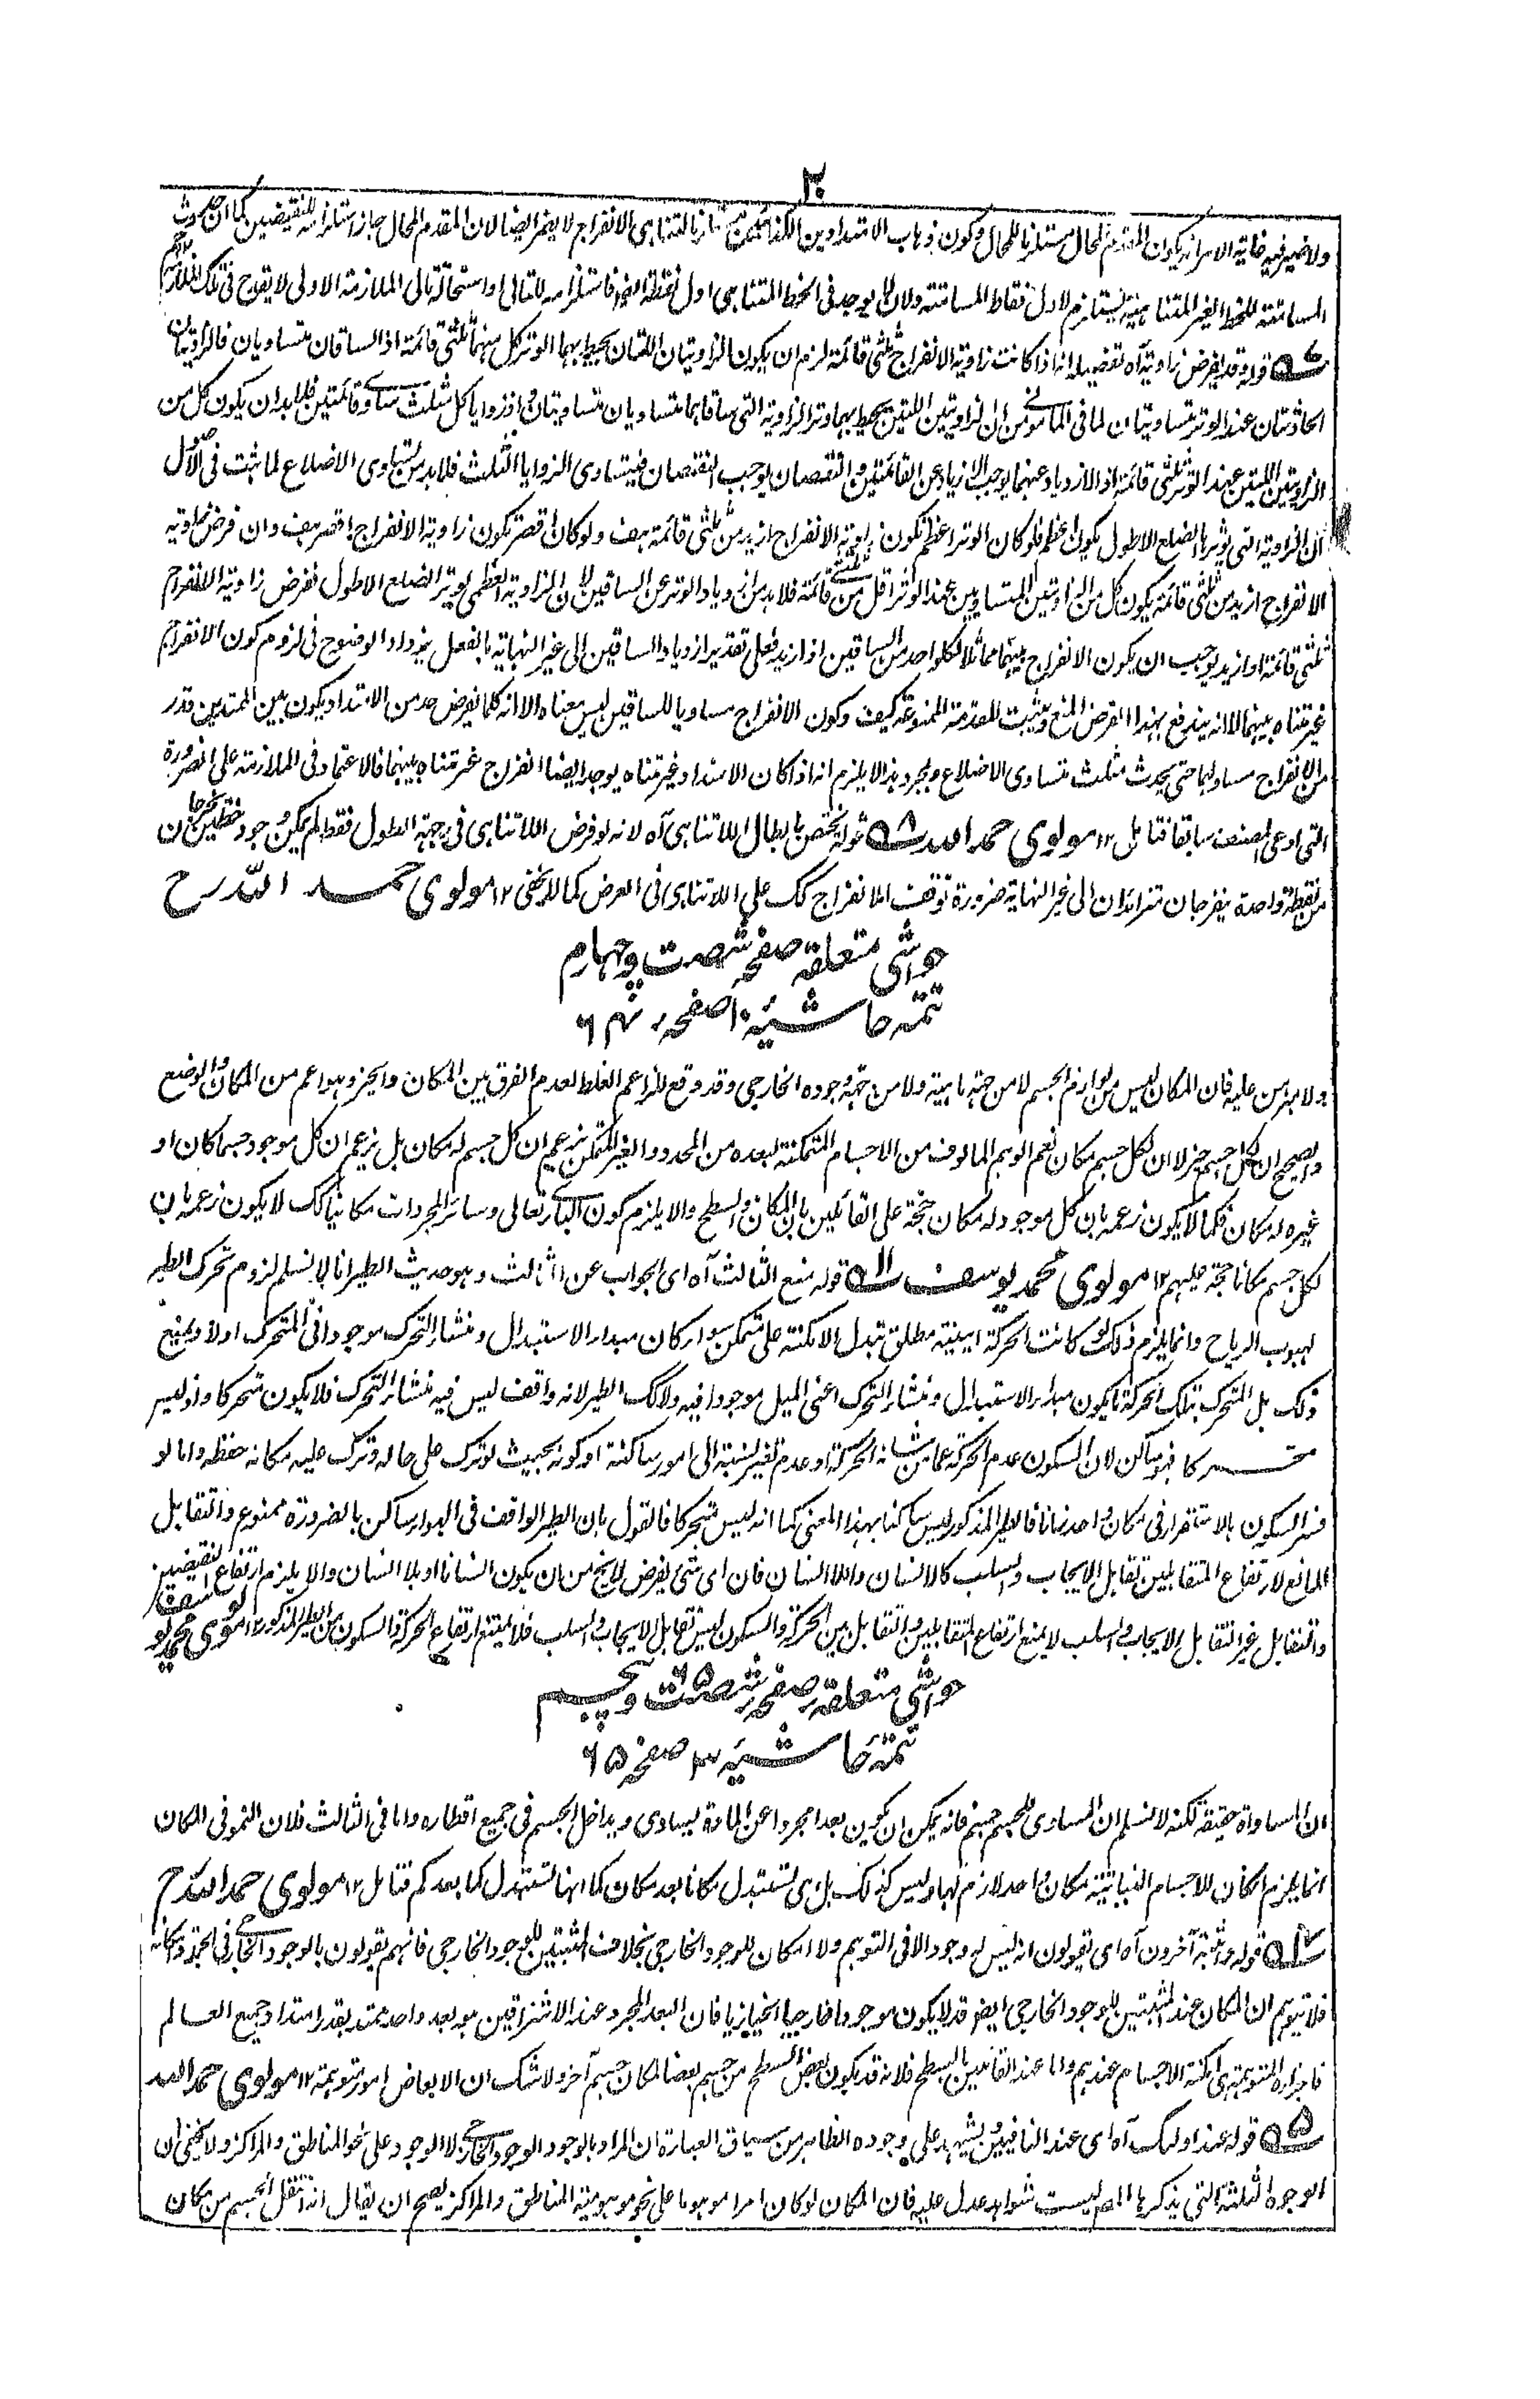 ٣٠
ولا ضير فيه غاية الامر انه يكون المقدم المحال مستلزما للمحال وكون ذهاب الامتدادين الكذائيين مستلزما لتناهي الانفراج لا يضر ايضا لان المقدم المحال جاز استلزامه للنقيضين كما ان حدوث
المسامتة للخط الغير المتناهي يستلزم لاول نقاط المسامتة ولان لا يوجد في الخط المتناهي اول نقطة ايضا فاستلزامه للتالي او استحالة تالي الملازمة الاولى لا يقدح في تلك الملازمة
قوله وقد يفرض زاوية آه تفصيله انه اذا كانت زاوية الانفراج ثلثي قائمة لزم ان يكون الزاويتان اللتان يحيط بهما الوتر كل منهما ثلثي قائمة اذ الساقان متساويان فالزاويتان
الحادثتان عند الوتر متساويتان لما في المامونى من ان الزاويتين اللتين يحيط بهما وتر الزاوية التي ساقاها متساويان متساويتان واذ زوايا كل مثلث تساوى قائمتين فلابد ان يكون كل من
الزاويتين اللتين عند الوتر ثلثي قائمة اذ الازدياد عنهما يوجب الازدياد عن القائمتين والنقصان يوجب النقصان فيتساوى الزوايا الثلث فلابد من تساوى الاضلاع لما ثبت في الاصول
ان الزاوية التي يوترها الضلع الاطول يكون اعظم فلو كان الوتر اعظم تكون زاوية الانفراج ازيد من ثلثي قائمة هف ولو كان اقصر تكون زاوية الانفراج اقصر هف وان فرض زاوية
الانفراج ازيد من ثلثي قائمة يكون كل من الزاويتين المتساويين عند الوتر اقل من ثلثي قائمة فلابد من ازدياد الوتر عن الساقين لان الزاوية العظمى يوتر الضلع الاطول ففرض زاوية الانفراج
ثلثي قائمة او ازيد يوجب ان يكون الانفراج بينهما مماثلا لكل واحد من الساقين او ازيد فعلى تقدير ازدياد الساقين الى غير النهاية بالفعل يزداد الوضوح في لزوم كون الانفراج
غير متناه بينهما الا انه يندفع بهذا الفرض المنع ويثبت المقدمة الممنوعة كيف وكون الانفراج مساويا للساقين ليس معناه الا انه كلما يفرض حد من الامتداد يكون بين الممتدين قدر
من الانفراج مساو لهما حتى يحدث مثلث متساوى الاضلاع وبمجرد هذا لا يلزم انه اذا كان الامتداد غير متناه يوجد ايضا انفراج غير متناه بينهما فالاعتماد في الملازمة على الضرورة
التي ادعى المصنف سابقا فتامل ١٢ مولوى حمد الله ٨ قوله تختص بابطال اللاتناهي آه لانه لو فرض اللاتناهي في جهة الطول فقط لم يمكن وجود خطين يخرجان
من نقطة واحدة ينفرجان متزائدان الى غير النهاية ضرورة توقف الانفراج كك على اللاتناهي في العرض كما لا يخفى ١٢ مولوى حمد الله رح
حواشى متعلقه صفحه شصت وچهارم
تتمه حاشيه ١٠ صفحه ٦٤
ولا مبرهن عليه فان المكان ليس من لوازم الجسم لا من جهة ماهيته ولا من جهة وجوده الخارجي وقد وقع للزاعم الغلط لعدم الفرق بين المكان والحيز وهو اعم من المكان والوضع
والصحيح ان لكل جسم حيزا لا ان لكل جسم مكان نعم الوهم المالوف من الاجسام المتمكنة لبعده من المحدد والغير المتمكن يزعم ان كل جسم له مكان بل يزعم ان كل موجود جسما كان او
غيره له مكان فكما لا يكون زعمه بان كل موجود له مكان حجة على القائلين بان المكان هو السطح والا يلزم كون البارى تعالى وسائر المجردات مكانيا كك لا يكون زعمه بان
لكل جسم مكانا حجة عليهم ١٢ مولوى محمد يوسف ١١ قوله منع الثالث آه اى الجواب عن الثالث وهو حديث الطير انا لا نسلم لزوم تحرك الطير
لهبوب الرياح وانما يلزم ذلك لو كانت الحركة الاينية مطلق تبدل الامكنة على متمكن سواء كان مبدء الاستبدال ومنشأ التحرك موجودا في المتحرك اولا وليس
ذلك بل المتحرك بتلك الحركة ما يكون مبدء الاستبدال ومنشأ التحرك اعنى الميل موجودا فيه ولا كك الطير لانه واقف ليس فيه منشأ التحرك فلا يكون متحركا واذ ليس
متحركا فهو ساكن لان السكون عدم الحركة عما من شانه الحركة او عدم تغير نسبة الى امور ساكنة او كونه بحيث لو ترك على حاله وترك عليه مكانه حفظه واما لو
فسر السكون بالاستقرار في مكان واحد زمانا فالطير المذكور ليس ساكنا بهذا المعنى كما انه ليس متحركا فالقول بان الطير الواقف في الهواء ساكن بالضرورة ممنوع والتقابل
المانع لارتفاع المتقابلين تقابل الايجاب والسلب كالانسان واللاانسان فان اى شئ يفرض لا يخ من ان يكون انسانا او بلا انسان والا يلزم ارتفاع النقيضين
والتقابل غير التقابل الايجاب والسلب لا يمنع ارتفاع المتقابلين والتقابل بين الحركة والسكون ليس تقابل الايجاب والسلب فلا يمتنع ارتفاع الحركة والسكون من الطير المذكور ١٢ مولوى محمد يوسف
حواشى متعلقه صفحه شصت وپنجم ٦٥
تتمه حاشيه ٣ صفحه ٦٥
ان المساواة حقيقة لكنه لا نسلم ان المساوى للجسم جسم فانه يمكن ان يكون بعدا مجردا عن المادة يساوى ويداخل الجسم في جميع اقطاره واما في الثالث فلان النمو في المكان
انما يلزم لو كان للاجسام النباتية مكان واحد لازم لها وليس كذلك بل هي تستبدل مكانا بعد مكان كما انها تستبدل كما بعد كم فتامل ١٢ مولوى حمد الله رح
قوله وثبته آخرون آه اى يقولون انه ليس له وجود الا في التوهم ولا امكان للوجود الخارجي بخلاف المثبتين للوجود الخارجي فانهم يقولون بالوجود الخارجي في الجملة وامكانه
فلا يتوهم ان المكان عند المثبتين للوجود الخارجي ايضو قد لا يكون موجودا خارجيا انحيازيا فان البعد المجرد عند الاشراقيين هو بعد واحد ممتد بقدر امتداد جميع العالم
فاجزاؤه المتوهمة هي امكنة الاجسام عندهم واما عند القائلين بالسطح فلانه قد يكون بعض السطح من جسم بعضا لمكان جسم آخر ولا شك ان الابعاض امور متوهمة ١٢ مولوى حمد الله
٥ قوله عند اولئك آه اى عند النافين ويشهد على وجوده الظاهر من سياق العبارة ان المراد بالوجود الوجود الخارجي لا الوجود على نحو المناطق والمراكز ولا يخفى ان
الوجوه الثلثة التي يذكرها المص ليست شواهد عدل عليه فان المكان لو كان امرا موهوما على نحو موهومية المناطق والمراكز يصح ان يقال انه انتقل الجسم من مكان